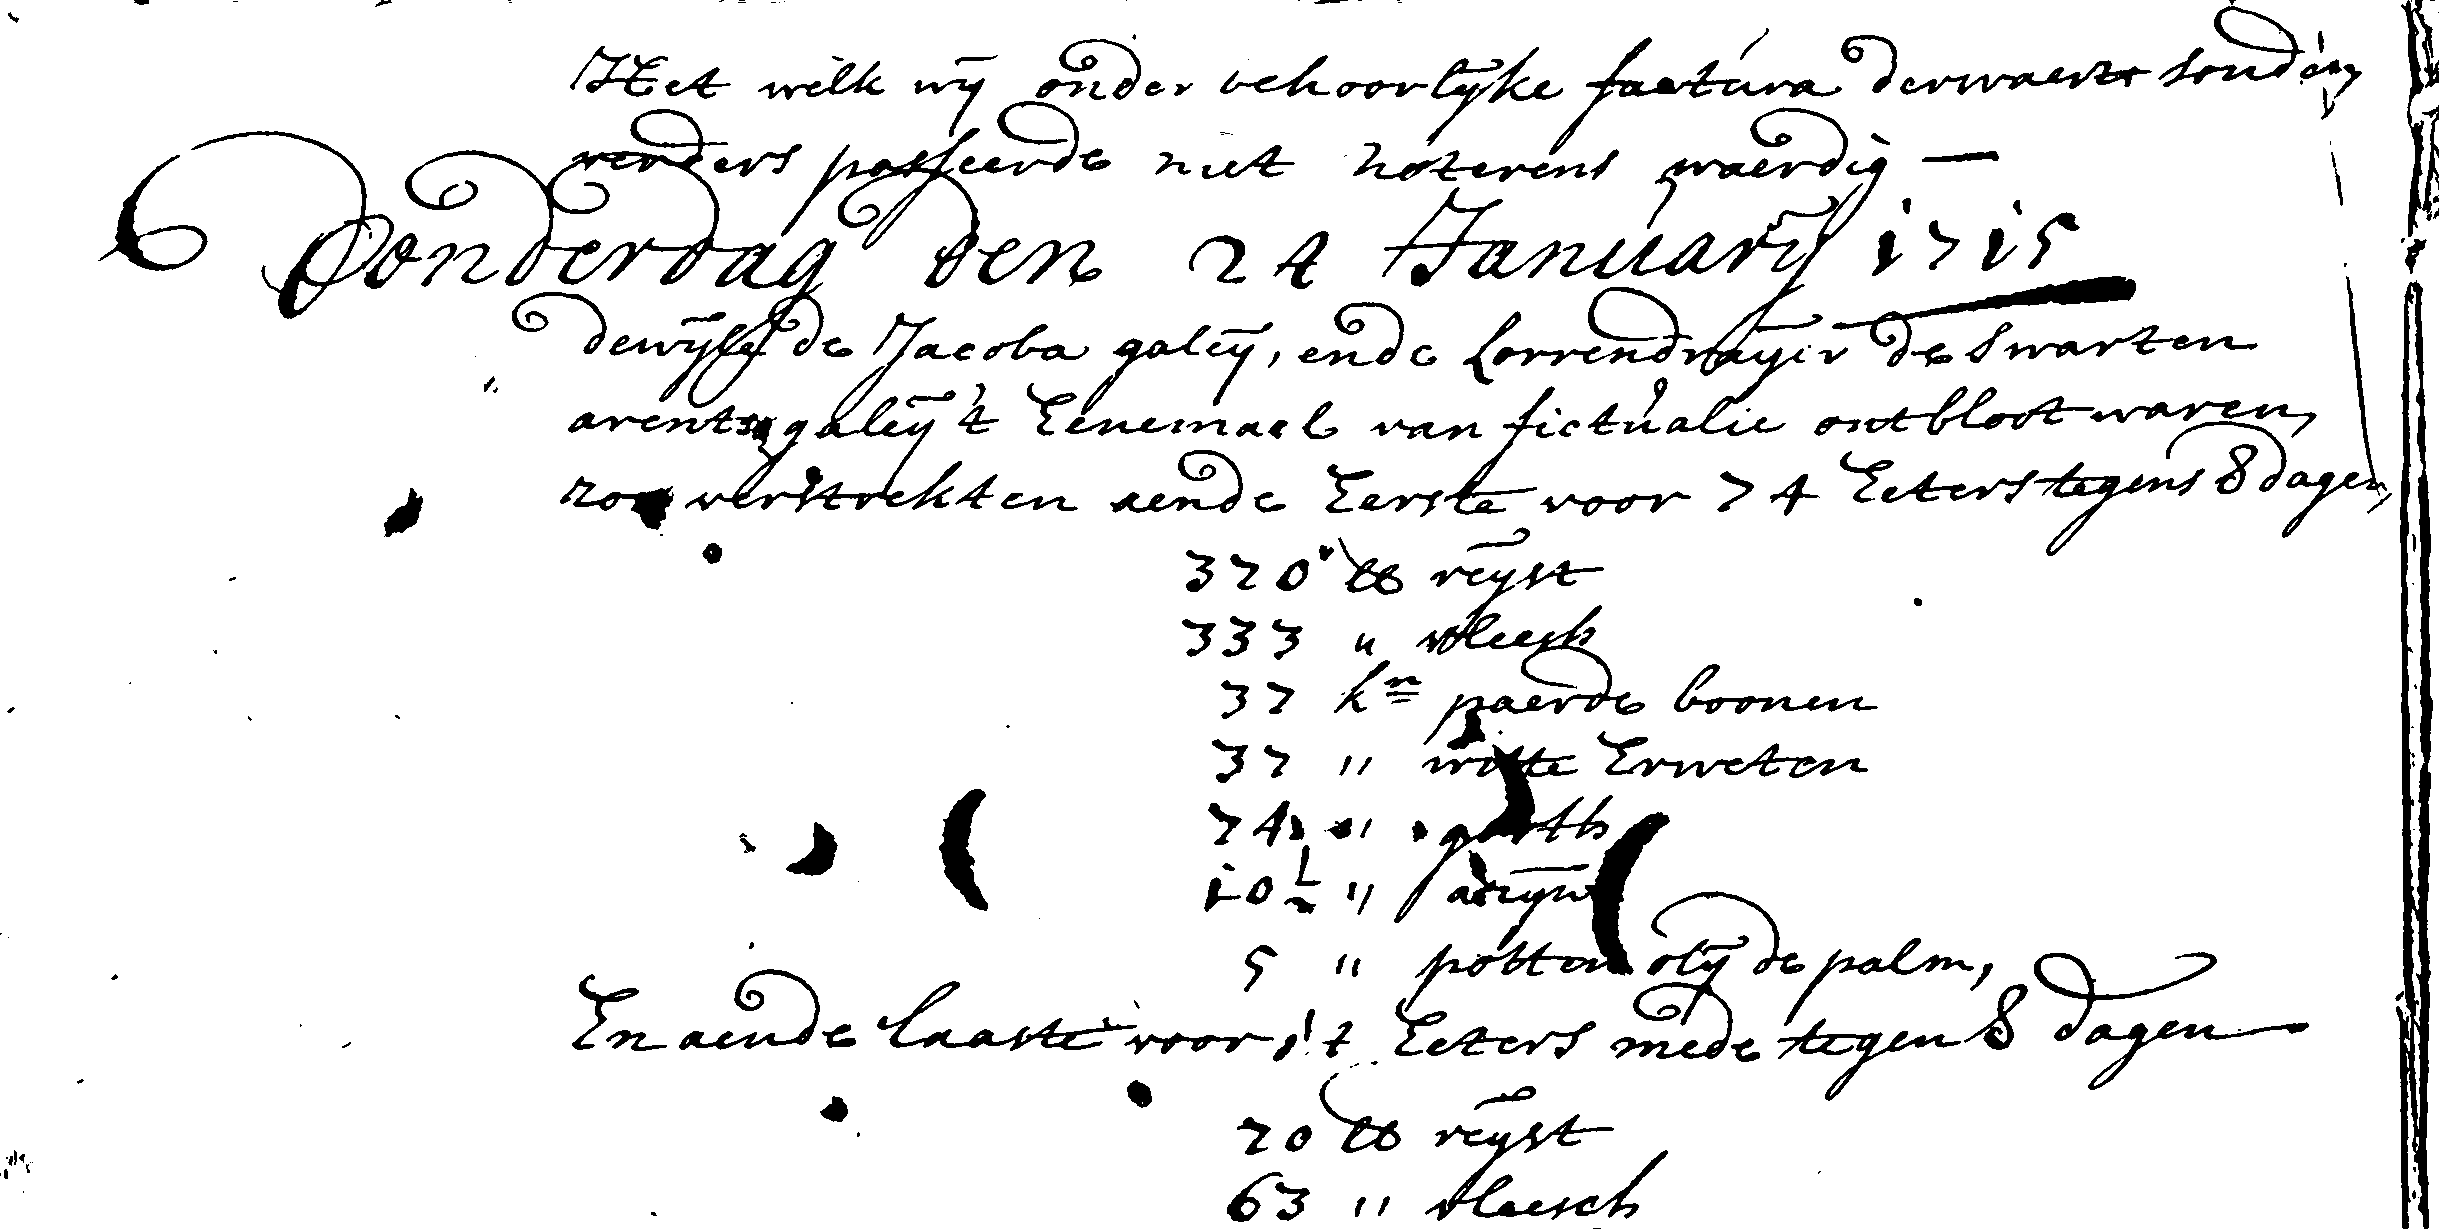 Het welk wij onder behoorlijke factura derwaerts sonden,
verders passeerde niet noterens waerdig —
Donderdag den 24 Januarij 1715
dewijle de Jacoba galeij, ende Lorrendraijer de Swarten
arents galeij 't Eenemael van fictualie ontbloot waren,
zoo verstrekten aende Eerste voor 74 Eeters tegens 8 dagen,
370 ℔ reijst
333 " vleesch
37 kn paerde boonen
37 " witte Erweten
74 " gorth
10½ " azijn
5 " potten olij de palm,
En aende laaste voor 14 Eeters mede tegen 8 dagen
70 ℔ reijst
63 " vleesch